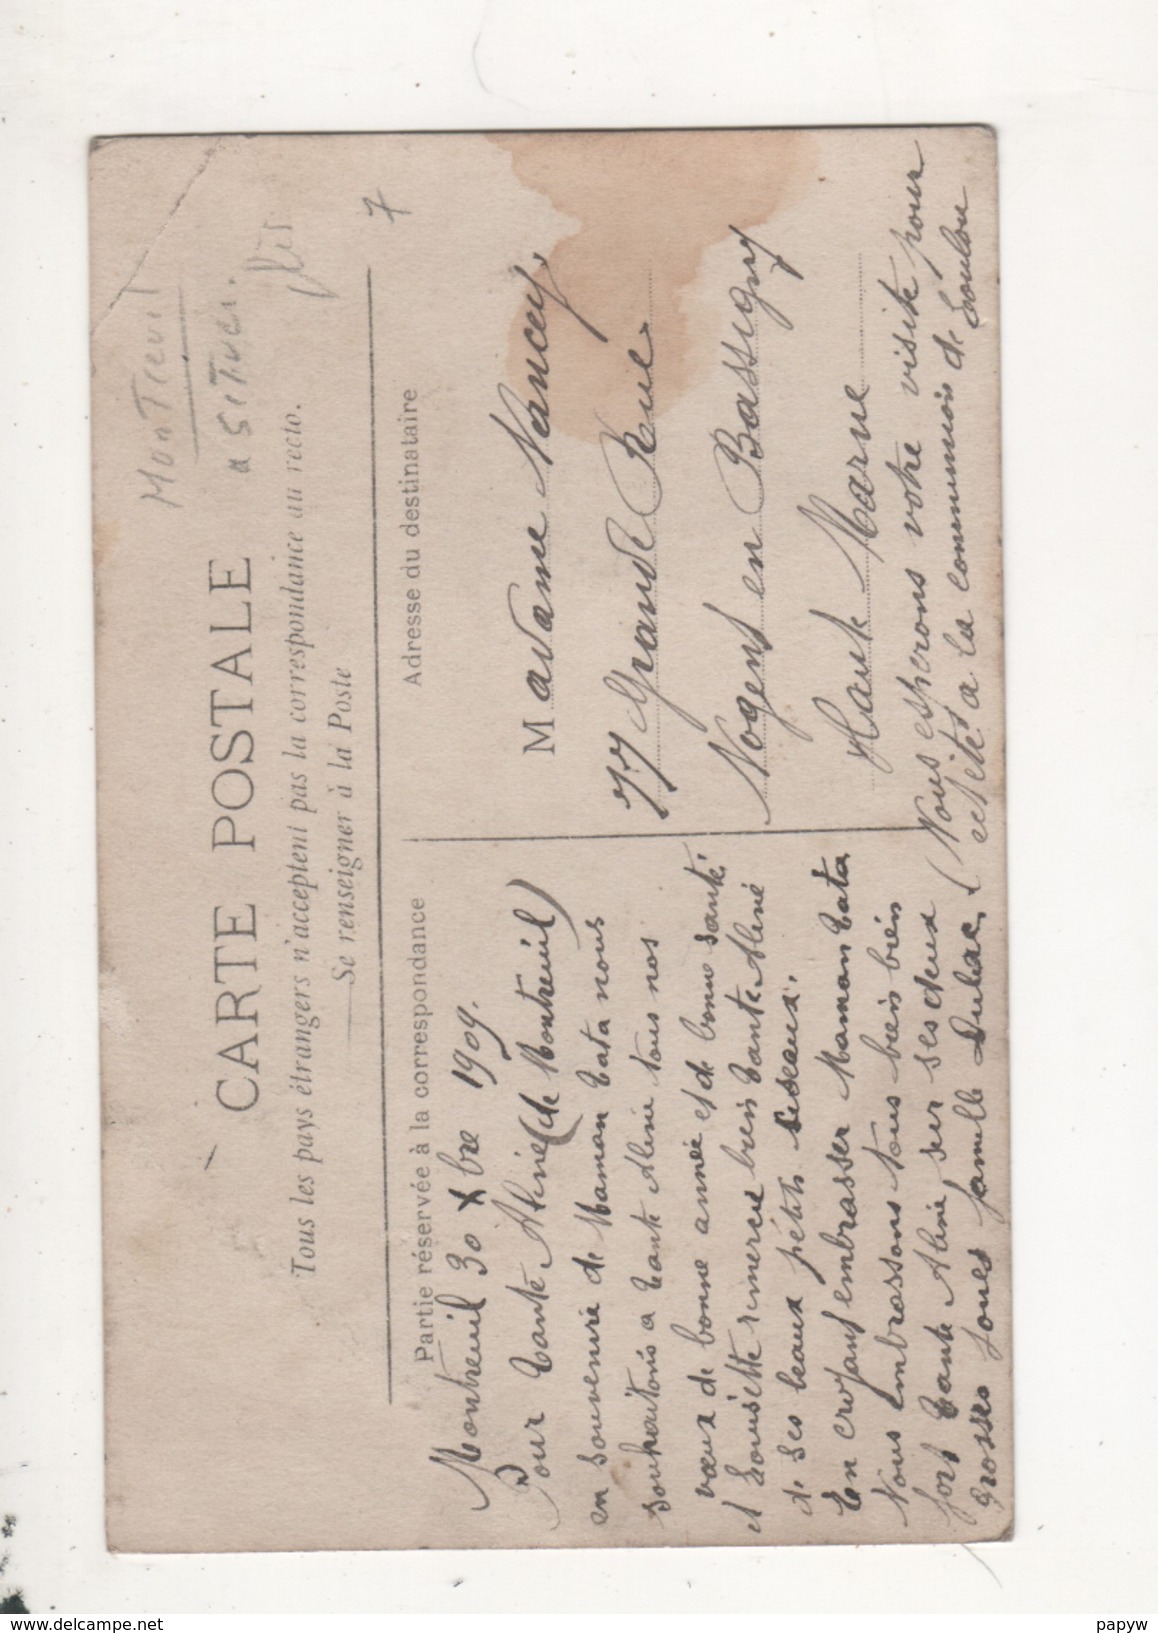 MonTreuil
a SITUER.
CARTE POSTALE
Tous les pays étrangers n'acceptent pas la correspondance au recto.
Se renseigner à la Poste
7
Partie réservée à la correspondance
Adresse du destinataire
Montreuil 30 Xbre 1909.
Pour Tante Aline (de Montreuil)
en souvenire de Maman Tata nous
souhaitons a Tante Aline tous nos
vœux de bonne année et de bonne santé.
et Louisette remercie bien Tante Aline
de ses beaux pétits ciseaux.
En croyant embrasser Maman Tata
Nous embrassons tous bien bien
fort Tante Aline, sur ses deux
grosses joues famille Dulac.
Madame Nancey.
77 Grande Rue.
Nogent en Bassigny
Haute Marne
(Nous esperons votre visite pour
cet été a la communion de Loulou
delcampe.net
papyw